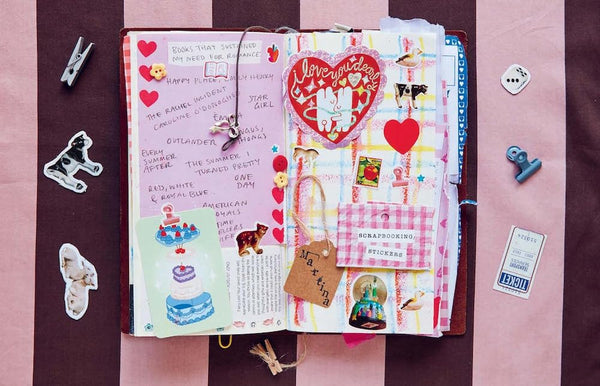 BOOKS THAT SUSTAINED
MY NEED FOR ROMANCE
HAPPY PLACE, EMILY HENRY
THE RACHEL INCIDENT
CAROLINE O'DONOGHUE
STAR
GIRL
EMMA
ANGUS,
THONGS
OUTLANDER
EVERY
SUMMER
AFTER
THE SUMMER I
TURNED PRETTY
RED, WHITE
& ROYAL BLUE
ONE
DAY
AMERICAN
ROYALS
TIME
LIFE
I love you dearly
SCRAPBOOKING,
STICKERS
Martina
TICKET